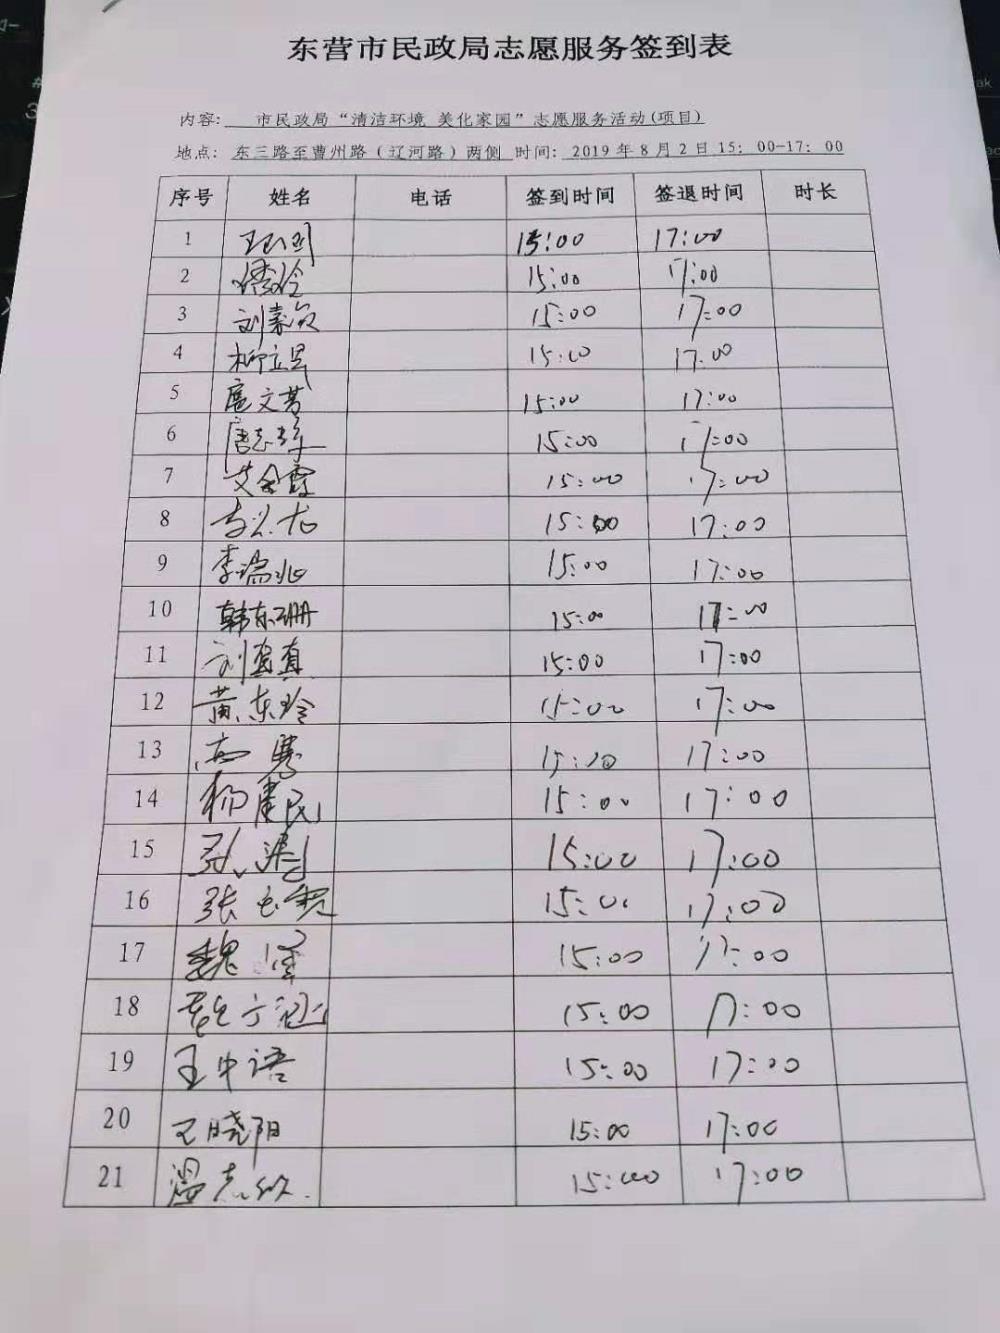 东营市民政局志愿服务签到表
内容: 市民政局“清洁环境 美化家园”志愿服务活动(项目)
地点: 东三路至曹州路（辽河路）两侧 时间: 2019年8月2日15: 00-17: 00
序号 姓名 电话 签到时间 签退时间 时长
1 15:00 17:00
2 15:00 17:00
3 15:00 17:00
4 15:00 17:00
5 庞文芳 15:00 17:00
6 15:00 17:00
7 艾金霞 15:00 17:00
8 15:00 17:00
9 李瑞兆 15:00 17:00
10 韩东珊 15:00 17:00
11 15:00 17:00
12 黄东玲 15:00 17:00
13 15:00 17:00
14 杨建民 15:00 17:00
15 15:00 17:00
16 15:00 17:00
17 魏 15:00 17:00
18 15:00 17:00
19 王中语 15:00 17:00
20 王晓阳 15:00 17:00
21 15:00 17:00